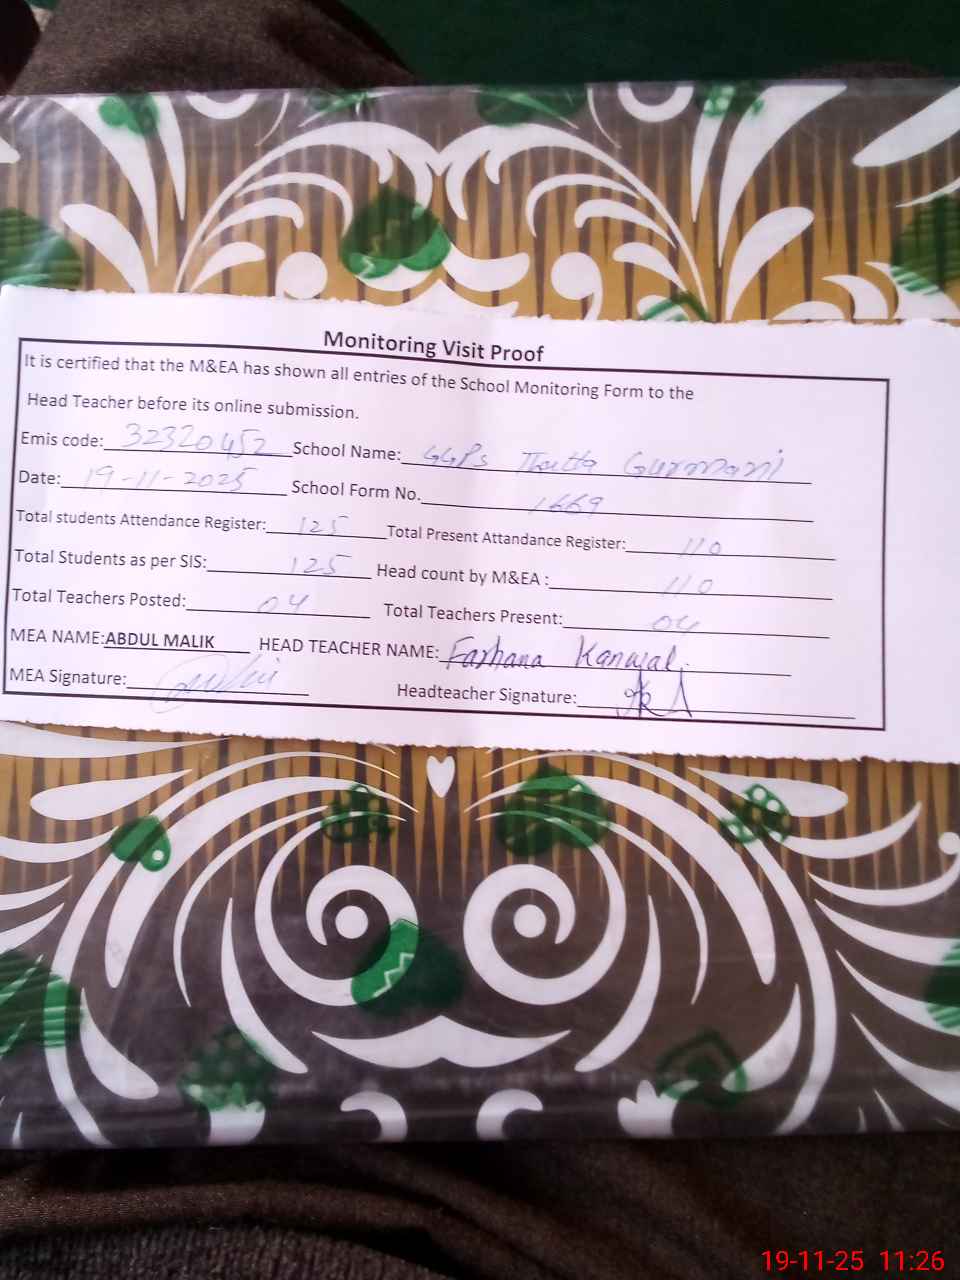 Monitoring Visit Proof
It is certified that the M&EA has shown all entries of the School Monitoring Form to the
Head Teacher before its online submission.
Emis code: 32320452 School Name: GGPS Thatta Gurmani
Date: 19-11-2025 School Form No. 1669
Total students Attendance Register: 125 Total Present Attandance Register: 110
Total Students as per SIS: 125 Head count by M&EA : 110
Total Teachers Posted: 04 Total Teachers Present: 04
MEA NAME:ABDUL MALIK HEAD TEACHER NAME: Farhana Kanwal.
MEA Signature: Headteacher Signature:
19-11-25 11:26